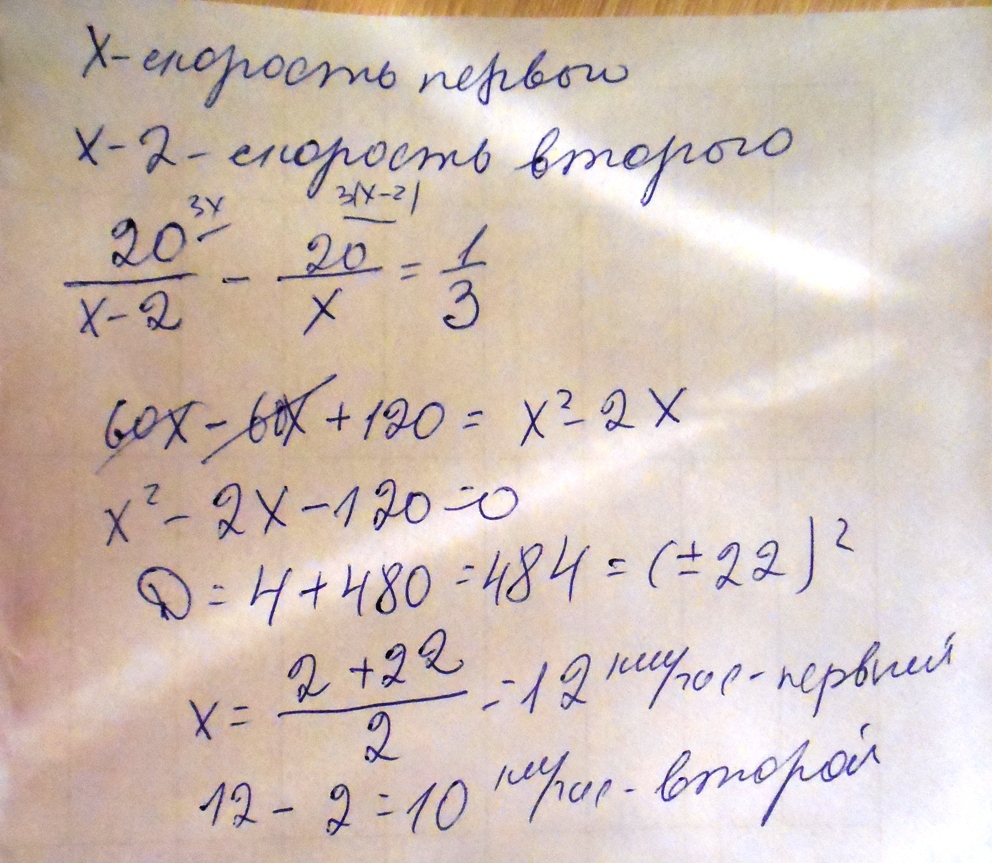 X - скорость первого
X - 2 - скорость второго
3x 3(x-2)
20/(x-2) - 20/x = 1/3
60x - 60x + 120 = x² - 2x
x² - 2x - 120 = 0
D = 4 + 480 = 484 = (±22)²
x = (2+22)/2 = 12 км/час - первый
12 - 2 = 10 км/час - второй